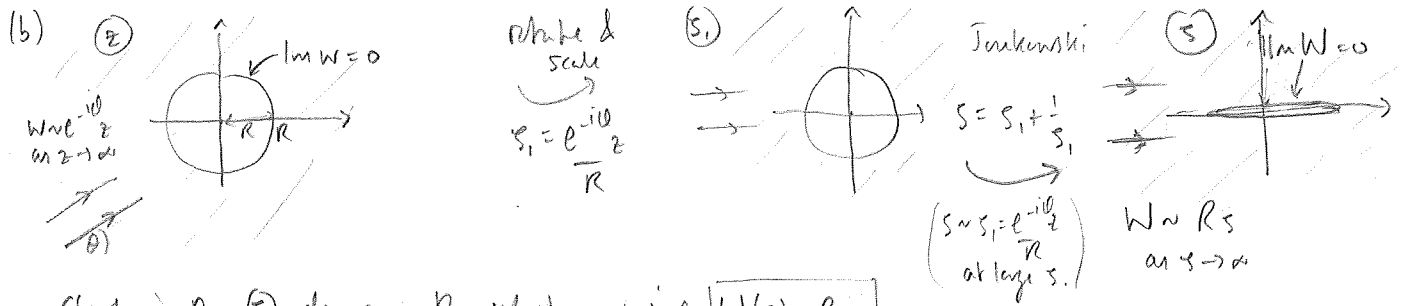 (b) (z) Im W = 0
W ~ e^{-iθ} z
as z → ∞
R R
θ)
rotate &
scale
ζ₁ = e^{-iθ} z / R
(ζ₁)
Joukowski
ζ = ζ₁ + 1/ζ₁
(ζ ~ ζ₁ = e^{-iθ} z / R
at large ζ.)
(ζ) Im W = 0
W ~ Rζ
as ζ → ∞